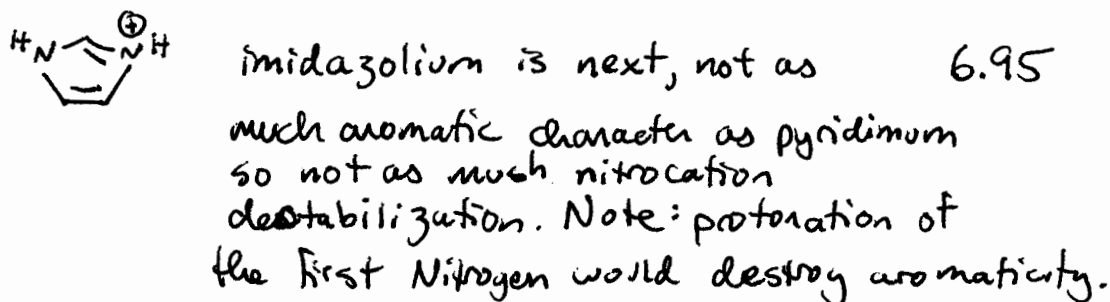 H N ⊕ N H
imidazolium is next, not as 6.95
much aromatic character as pyridimum
so not as much nitrocation
destabilization. Note: protonation of
the first Nitrogen would destroy aromaticity.